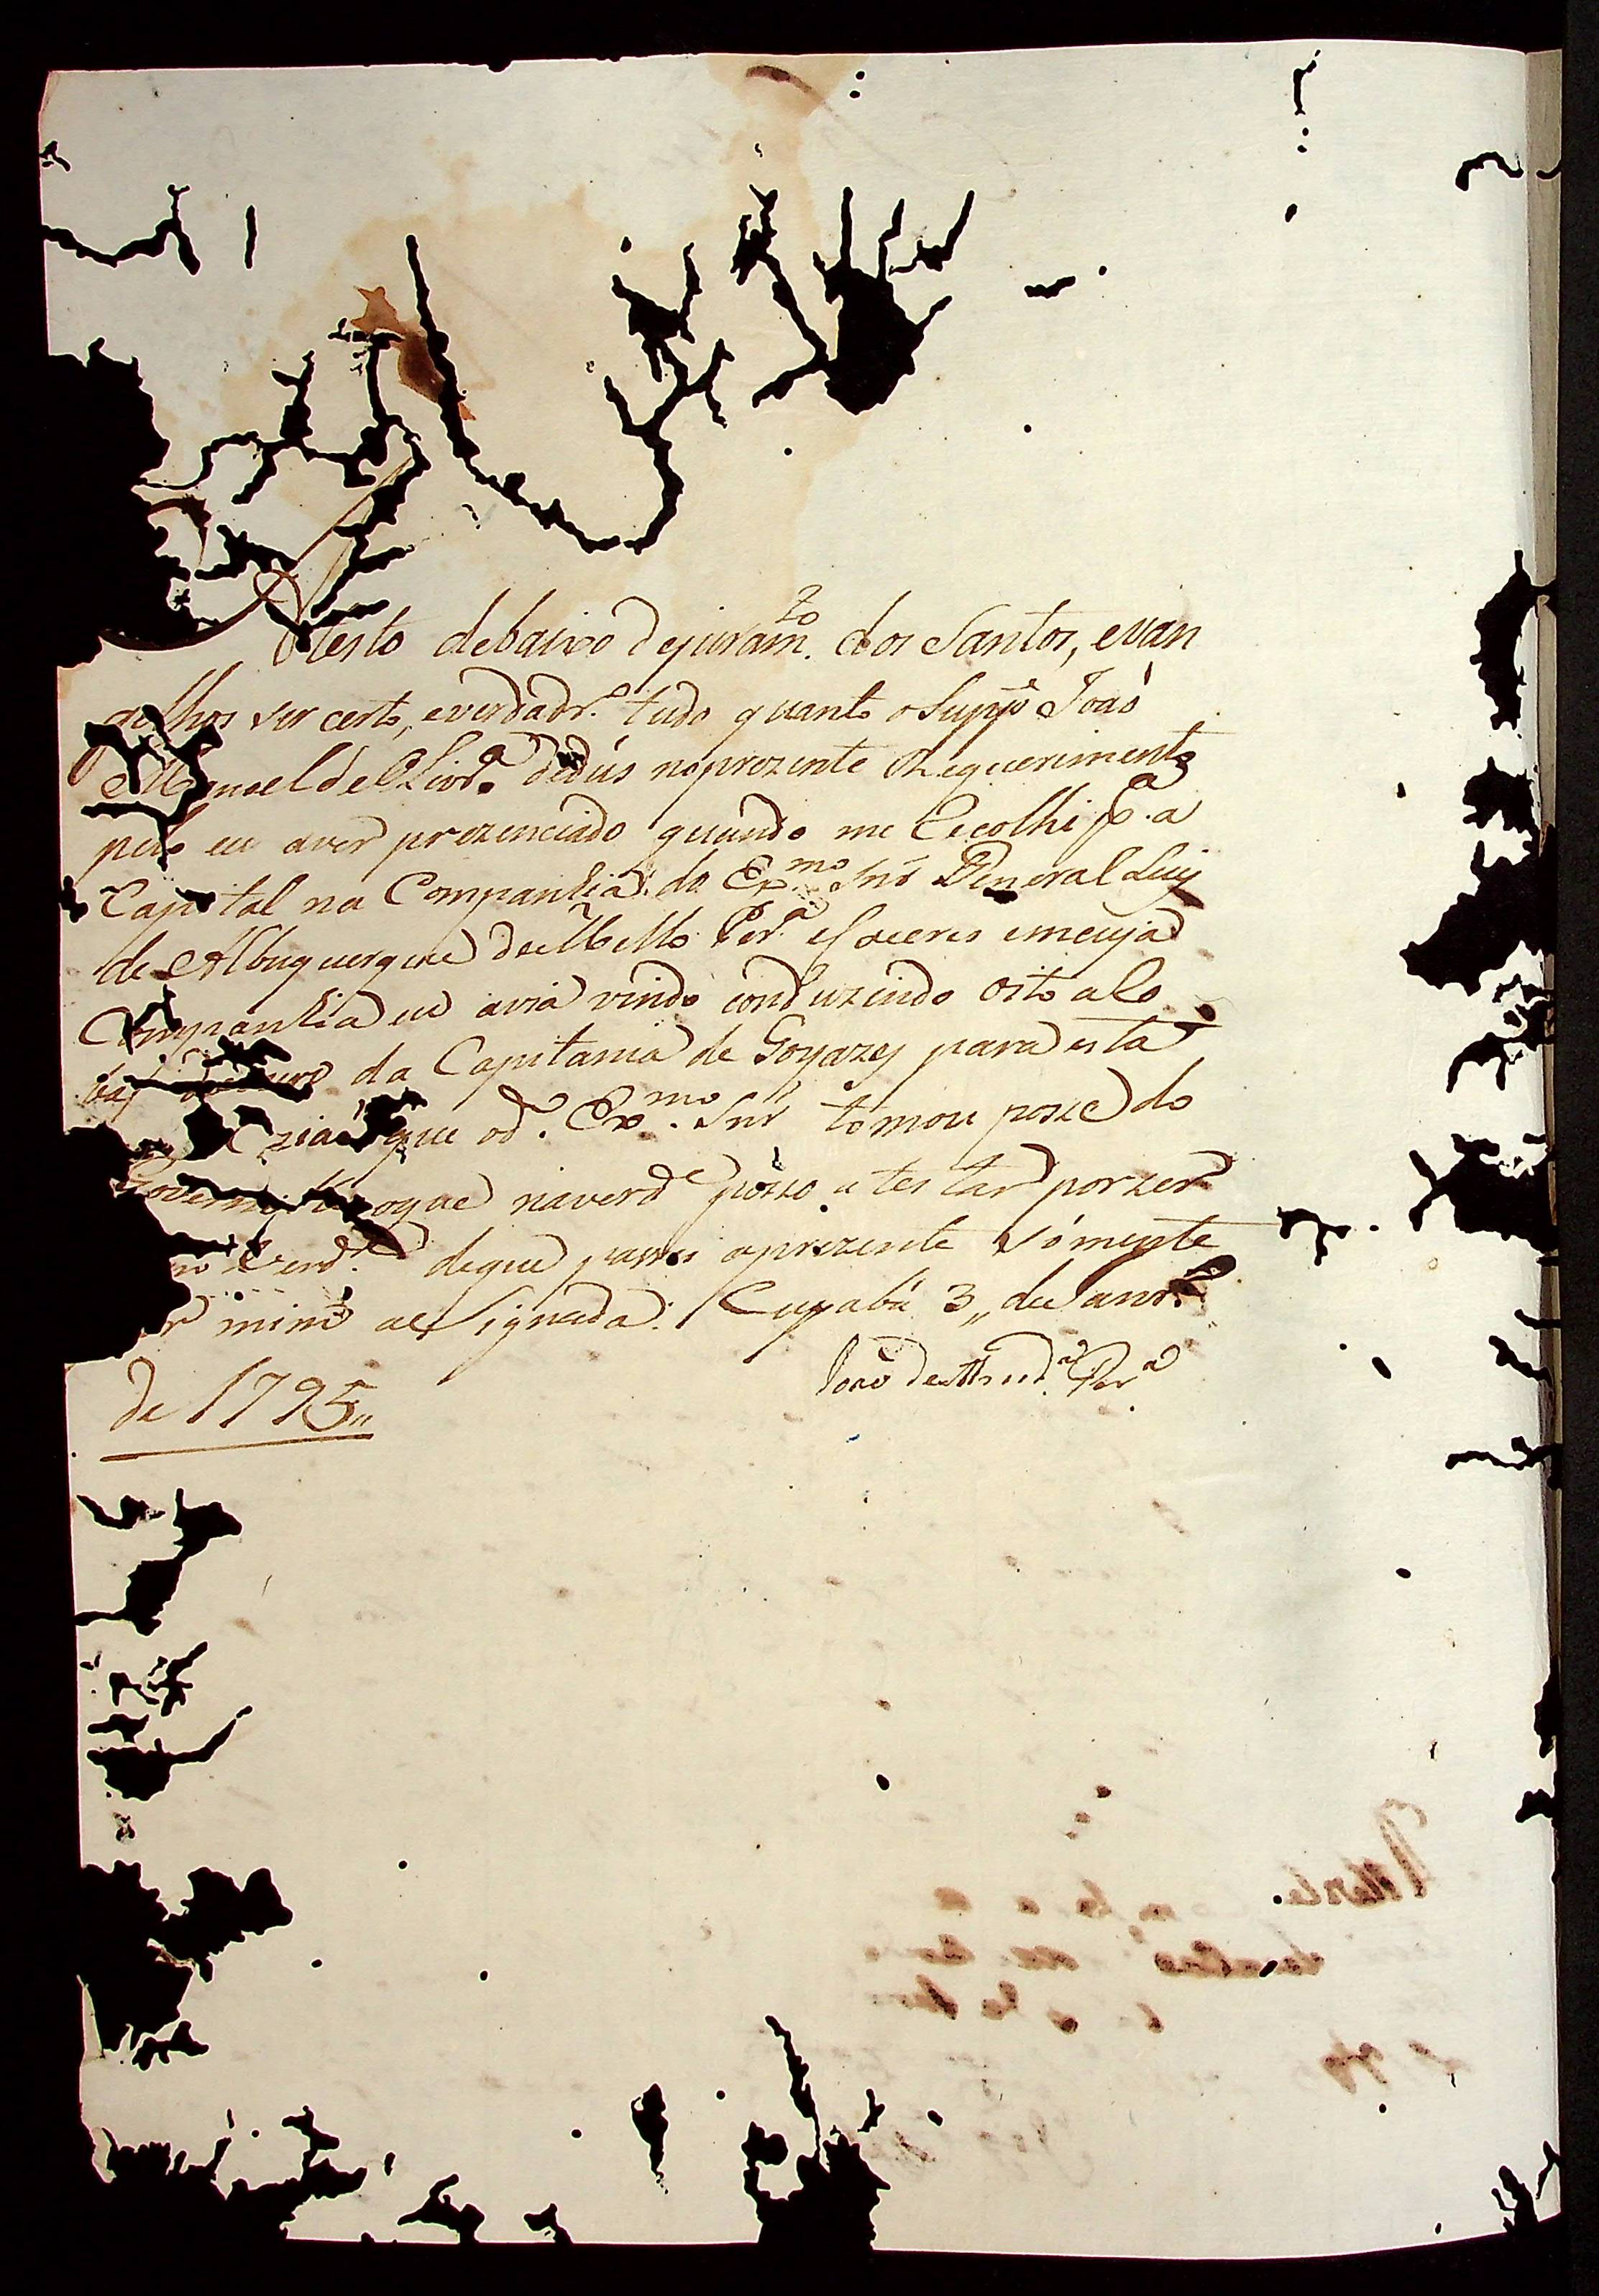 Atesto debaixo dejuram.to dos Santos, evan
gelhos ser certo, everdadr.o tudo quanto o Supp.e Joaõ
Manoel de Olivr.a dedús noprezente Requerimento
pelo eu aver prezenciado quando me Recolhi p.a a
Capital na Companhia do Ex.mo Snr General Luis
de Albuquerque deMello Per.a eCaceres emcuja
Companhia eu avia vindo conduzindo oito alo
da Capitania de Goyazes para esta
que od.o Ex.mo Snr tomou posse do
Governo oque naverd.e pósso atestar porser
Verd.e deque passei aprezente sómente
mim asSignada. Cuyabá 3,, de Janr.o
de 1795,,
João deAlmd.a Per.a